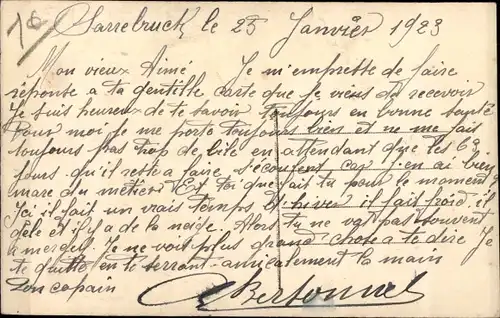 Sarrebruck le 25 Janvier 1923
Mon vieux Aimé Je m'empresse de faire
réponse a ta gentille carte que je viens de recevoir
Je suis heureux de te savoir toujours en bonne santé
Pour moi je me porte toujours bien et ne me fait
toujours pas trop de bile en attendant que les 69
jours qu'il reste a faire s'écoulent car j'en ai bien
mare du métier Et toi que fait tu pour le moment
Ici il fait un vrais temps d'hiver il fait froid il
gèle et il y a de la neige. Alors tu ne vas pas souvent
a Je ne voit plus grand chose a te dire Je
te quitte en te serrant amicalement la main
Ton copain